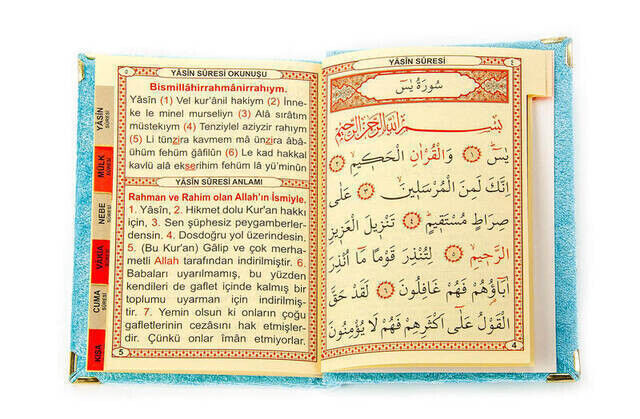 ٥ YÂSÎN SÛRESİ OKUNUŞU
Bismillâhirrahmânirrahıym.
Yâsîn (1) Vel kur'ânil hakiym (2) İnne-
ke le minel murseliyn (3) Alâ sırâtım
müstekıym (4) Tenziylel aziyzir rahıym
(5) Li tünzira kavmem mâ ünzira âbâ-
ühüm fehüm ğâfilûn (6) Le kad hakkal
kavlü alâ ekserihim fehüm lâ yü'minûn
YÂSÎN SÛRESİ ANLAMI
Rahman ve Rahim olan Allah'ın İsmiyle.
1. Yâsîn, 2. Hikmet dolu Kur'an hakkı
için, 3. Sen şüphesiz peygamberler-
densin. 4. Dosdoğru yol üzerindesin.
5. (Bu Kur'an) Gâlip ve çok merha-
metli Allah tarafından indirilmiştir. 6.
Babaları uyarılmamış, bu yüzden
kendileri de gaflet içinde kalmış bir
toplumu uyarman için indirilmiş-
tir. 7. Yemin olsun ki onların çoğu
gafletlerinin cezâsını hak etmişler-
dir. Çünkü onlar îman etmiyorlar.
5
YÂSİN
SÛRESİ
MÜLK
SÛRESİ
NEBE
SÛRESİ
VAKIA
SÛRESİ
CUMA
SÛRESİ
KISA
YÂSÎN SÛRESİ ٤
سُورَةُ يٰسٓ
بِسْمِ اللّٰهِ الرَّحْمٰنِ الرَّحِيمِ
يٰسٓ ١ وَالْقُرْاٰنِ الْحَكِيمِ ٢
اِنَّكَ لَمِنَ الْمُرْسَلِينَ ٣ عَلٰى
صِرَاطٍ مُسْتَقِيمٍ ٤ تَنْزِيلَ الْعَزِيزِ
الرَّحِيمِ ٥ لِتُنْذِرَ قَوْمًا مَا اُنْذِرَ
اٰبَاؤُهُمْ فَهُمْ غَافِلُونَ ٦ لَقَدْ حَقَّ
الْقَوْلُ عَلٰى اَكْثَرِهِمْ فَهُمْ لَا يُؤْمِنُونَ
4